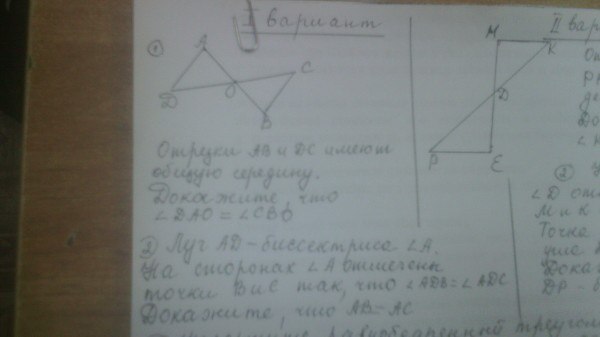 I вариант
①
A
C
O
D
B
Отрезки AB и DC имеют
общую середину.
Докажите, что
∠DAO = ∠CBO
② Луч AD – биссектриса ∠A.
На сторонах ∠A отмечены
точки B и C так, что ∠ADB = ∠ADC
Докажите, что AB = AC
равнобедренный
II вар
M
K
D
P
E
От
До
②
∠D от
M и K
Точка
Дока
DP – б